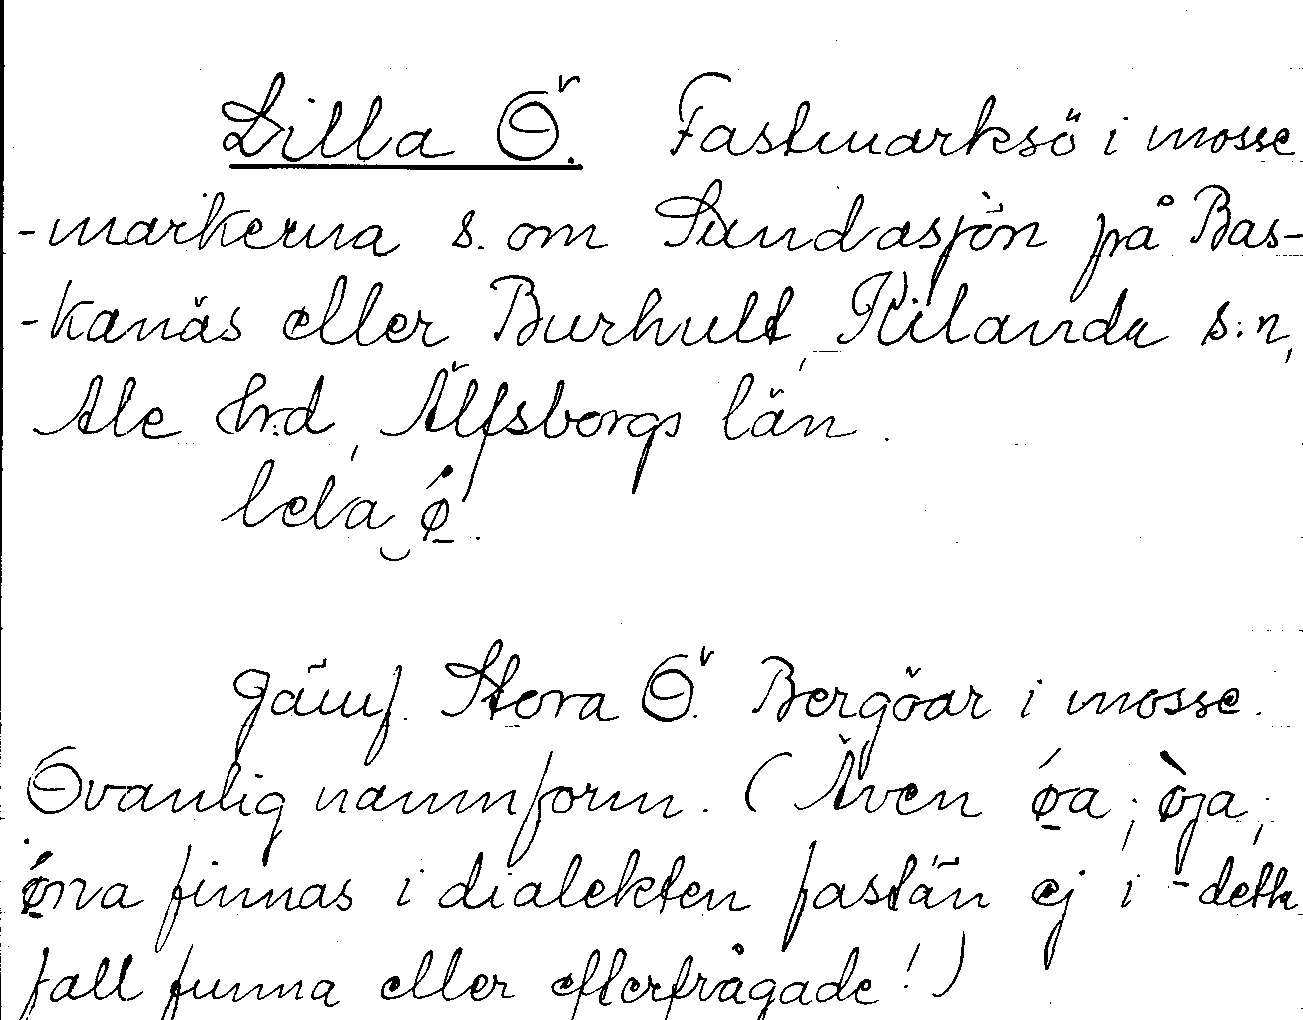 Lilla Ö. Fastmarksö i mosse
-markerna s. om Sundasjön på Bas-
-kanäs eller Burhult, Kilanda s:n,
Ale hrd, Älfsborgs län.
lela‿ǿ̱.
Jämf. Stora Ö. Bergöar i mosse.
Ovanlig namnform. (Även ǿ̱a; ø̱̀ja;
ǿ̱na finnas i dialekten fastän ej i detta
fall funna eller efterfrågade!)